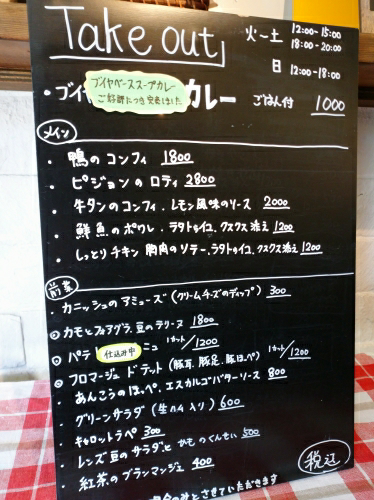 Take out
火-土 12:00-15:00
18:00-20:00
日 12:00-18:00
・ブイヤ
ブイヤベーススープカレー
ご好評につき完売しました
カレー ごはん付 1000
メイン
・鴨のコンフィ 1800
・ピジョンのロティ 2800
・牛タンのコンフィ、レモン風味のソース 2000
・鮮魚のポワレ、ラタトゥイユ、クスクス添え 1200
・しっとりチキン 胸肉のソテー、ラタトゥイユ、クスクス添え 1200
前菜
・カニッシュのアミューズ (クリームチーズのディップ) 300
カモとフォアグラ、豆のテリーヌ 1800
パテ
仕込み中
ニュ 1カット/1200
フロマージュ ド テット (豚耳、豚足、豚ほっぺ) 1カット/1200
・あんこうのほっぺ、エスカルゴバターソース 800
・グリーンサラダ (生ハム入り) 600
・キャロットラペ 300
・レンズ豆のサラダと かものくんせい 500
・紅茶のブランマンジェ 400
税込
とさせていただきます